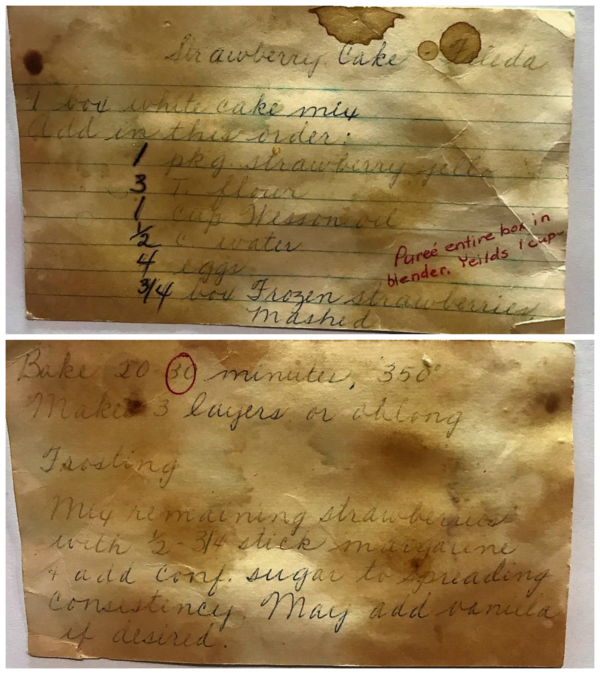 Strawberry Cake Foleda
1 box white cake mix
Add in this order:
1 pkg strawberry jello
3 T. flour
1 cup Wesson oil
1/2 c. water
4 eggs
3/4 box Frozen strawberries
Mashed
Pureé entire box in
blender. Yeilds 1 cup-
Bake 20 30 minutes, 350°
Makes 3 layers or oblong
Frosting
Mix remaining strawberries
with 1/2 - 3/4 stick margarine
+ add conf. sugar to spreading
consistency. May add vanilla
if desired.